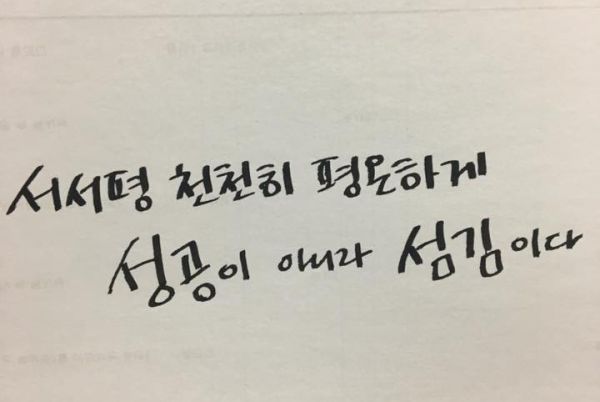 서서평 천천히 평온하게
성공이 아니라 섬김이다